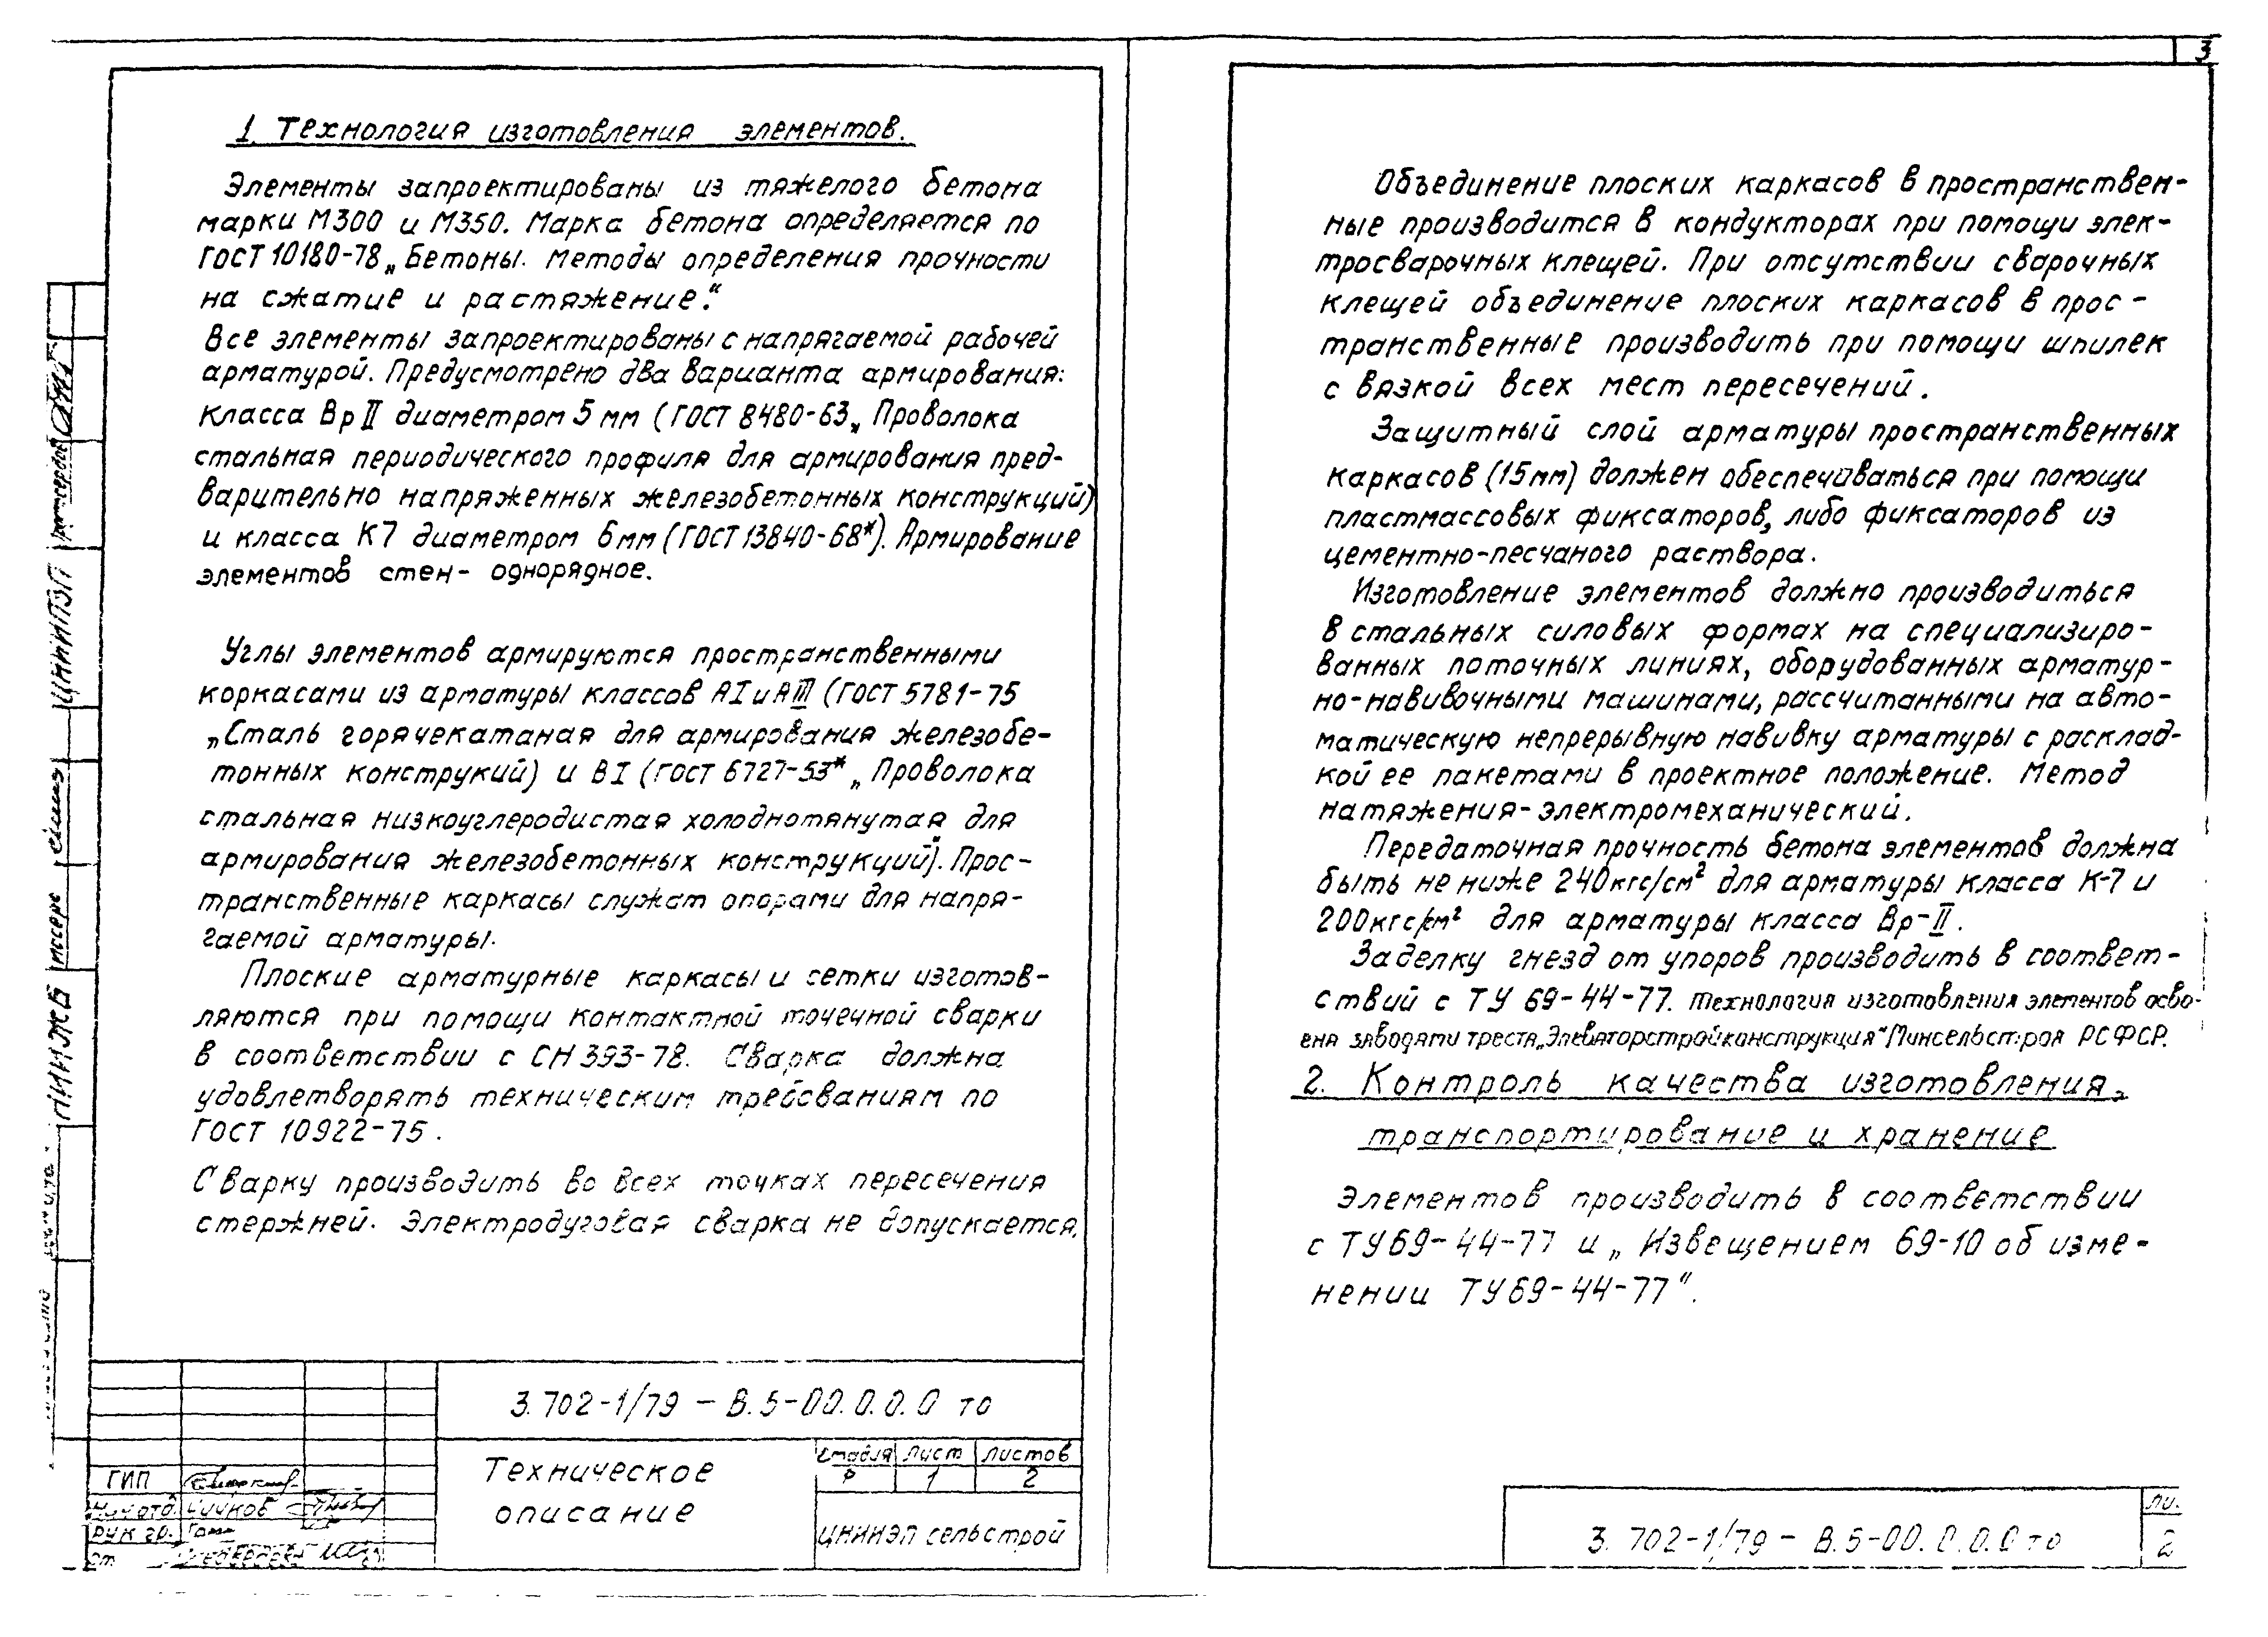 3
1. Технология изготовления элементов.
Элементы запроектированы из тяжелого бетона
марки М300 и М350. Марка бетона определяется по
ГОСТ 10180-78 „Бетоны. Методы определения прочности
на сжатие и растяжение".
Все элементы запроектированы с напрягаемой рабочей
арматурой. Предусмотрено два варианта армирования:
класса Вр II диаметром 5 мм (ГОСТ 8480-63 „Проволока
стальная периодического профиля для армирования пред-
варительно напряженных железобетонных конструкций)
и класса К7 диаметром 6 мм (ГОСТ 13840-68*). Армирование
элементов стен - однорядное.
Углы элементов армируются пространственными
коркасами из арматуры классов АI и АIII (ГОСТ 5781-75
„Сталь горячекатаная для армирования железобе-
тонных конструкий) и ВI (ГОСТ 6727-53* „Проволока
стальная низкоуглеродистая холоднотянутая для
армирования железобетонных конструкций"). Прос-
транственные каркасы служат опорами для напря-
гаемой арматуры.
Плоские арматурные каркасы и сетки изготов-
ляются при помощи контактной точечной сварки
в соответствии с СН 393-78. Сварка должна
удовлетворять техническим требованиям по
ГОСТ 10922-75.
Сварку производить во всех точках пересечения
стержней. Электродуговая сварка не допускается.
3.702-1/79 - В.5-00.0.0.0 то
Техническое
описание
стадия лист листов
Р 1 2
ЦНИИЭПсельстрой
ГИП
Нач.отд. Чичков
Рук гр.
Объединение плоских каркасов в пространствен-
ные производится в кондукторах при помощи элек-
тросварочных клещей. При отсутствии сварочных
клещей объединение плоских каркасов в прос-
транственные производить при помощи шпилек
с вязкой всех мест пересечений.
Защитный слой арматуры пространственных
каркасов (15мм) должен обеспечиваться при помощи
пластмассовых фиксаторов, либо фиксаторов из
цементно-песчаного раствора.
Изготовление элементов должно производиться
в стальных силовых формах на специализиро-
ванных поточных линиях, оборудованных арматур-
но-навивочными машинами, рассчитанными на авто-
матическую непрерывную навивку арматуры с расклад-
кой ее пакетами в проектное положение. Метод
натяжения - электромеханический.
Передаточная прочность бетона элементов должна
быть не ниже 240кгс/см² для арматуры класса К-7 и
200кгс/см² для арматуры класса Вр-II.
Заделку гнезд от упоров производить в соответ-
ствий с ТУ 69-44-77. Технология изготовления элементов осво-
ена заводами треста „Элеваторстройконструкция" Минсельстроя РСФСР.
2. Контроль качества изготовления,
транспортирование и хранение
элементов производить в соответствии
с ТУ69-44-77 и „Извещением 69-10 об изме-
нении ТУ69-44-77".
3.702-1/79 - В.5-00.0.0.0 то
2